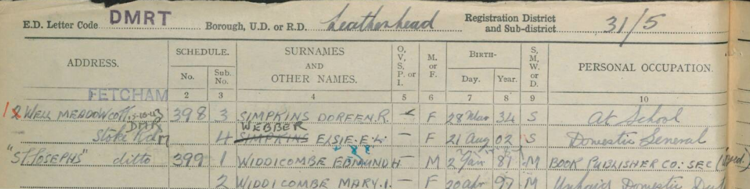 E.D. Letter Code DMRT Borough, U.D. or R.D. Leatherhead Registration District and Sub-district 31/5
ADDRESS. SCHEDULE. No. Sub. No. SURNAMES AND OTHER NAMES. O, V, S, P, or I. M. or F. BIRTH- Day. Year. S, M, W, or D. PERSONAL OCCUPATION.
FETCHAM 2 3 4 5 6 7 8 9 10
WELL MEADOW COTT. 398 3 SIMPKINS DOREEN.R. - F 28 Mar 34 S At School
DMR
WEBBER
Stoke Rd. 4 SIMPKINS ELSIE.E. - F 21 Aug 02 S Domestic General
"ST. JOSEPHS" ditto 399 1 WIDDICOMBE EDMUND H - M 2 Jan 87 M BOOK PUBLISHER CO: SEC
2 WIDDICOMBE MARY.I. - F 20 Apr 97 M Unpaid Domestic